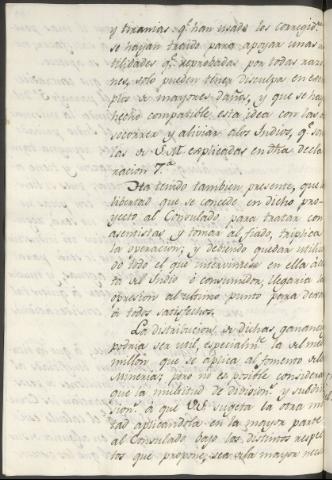 y tiranias q.e han usado los corregid.res
se hayan traido para apoyar unas u-
tilidades q.e reprobadas por todas razo-
nes, solo pueden tener disculpa en
de mayores daños, y que se hay
hecho compatible esta idea con las
socorrer y aliviar a los Indios, q.e son
las de S.M. explicadas en dha decla-
racion 7.a
Ha tenido tambien presente, que
libertad que se concede en dicho pro-
yecto al Consulado, para tratar con
asentistas y tomar al fiado, triplica
la operacion; y debiendo quedar utiliza-
do todo el que interviniese en ella à
ta el Indio ò consumidor, llegaria la
opresion al ultimo punto para dexar
à todos satisfechos.
La distribucion de dichas ganancias
podria ser util, especialm.te la del me
millon que se aplica al fomento de la
Mineria; pero no es posible considerar
que la multitud de division.s y subdivi-
sion.s à que V.E. sugeta la otra mi-
tad aplicandola en la mayor parte
al Consulado bajo los distintos respec-
tos que propone, sea de la mayor nece